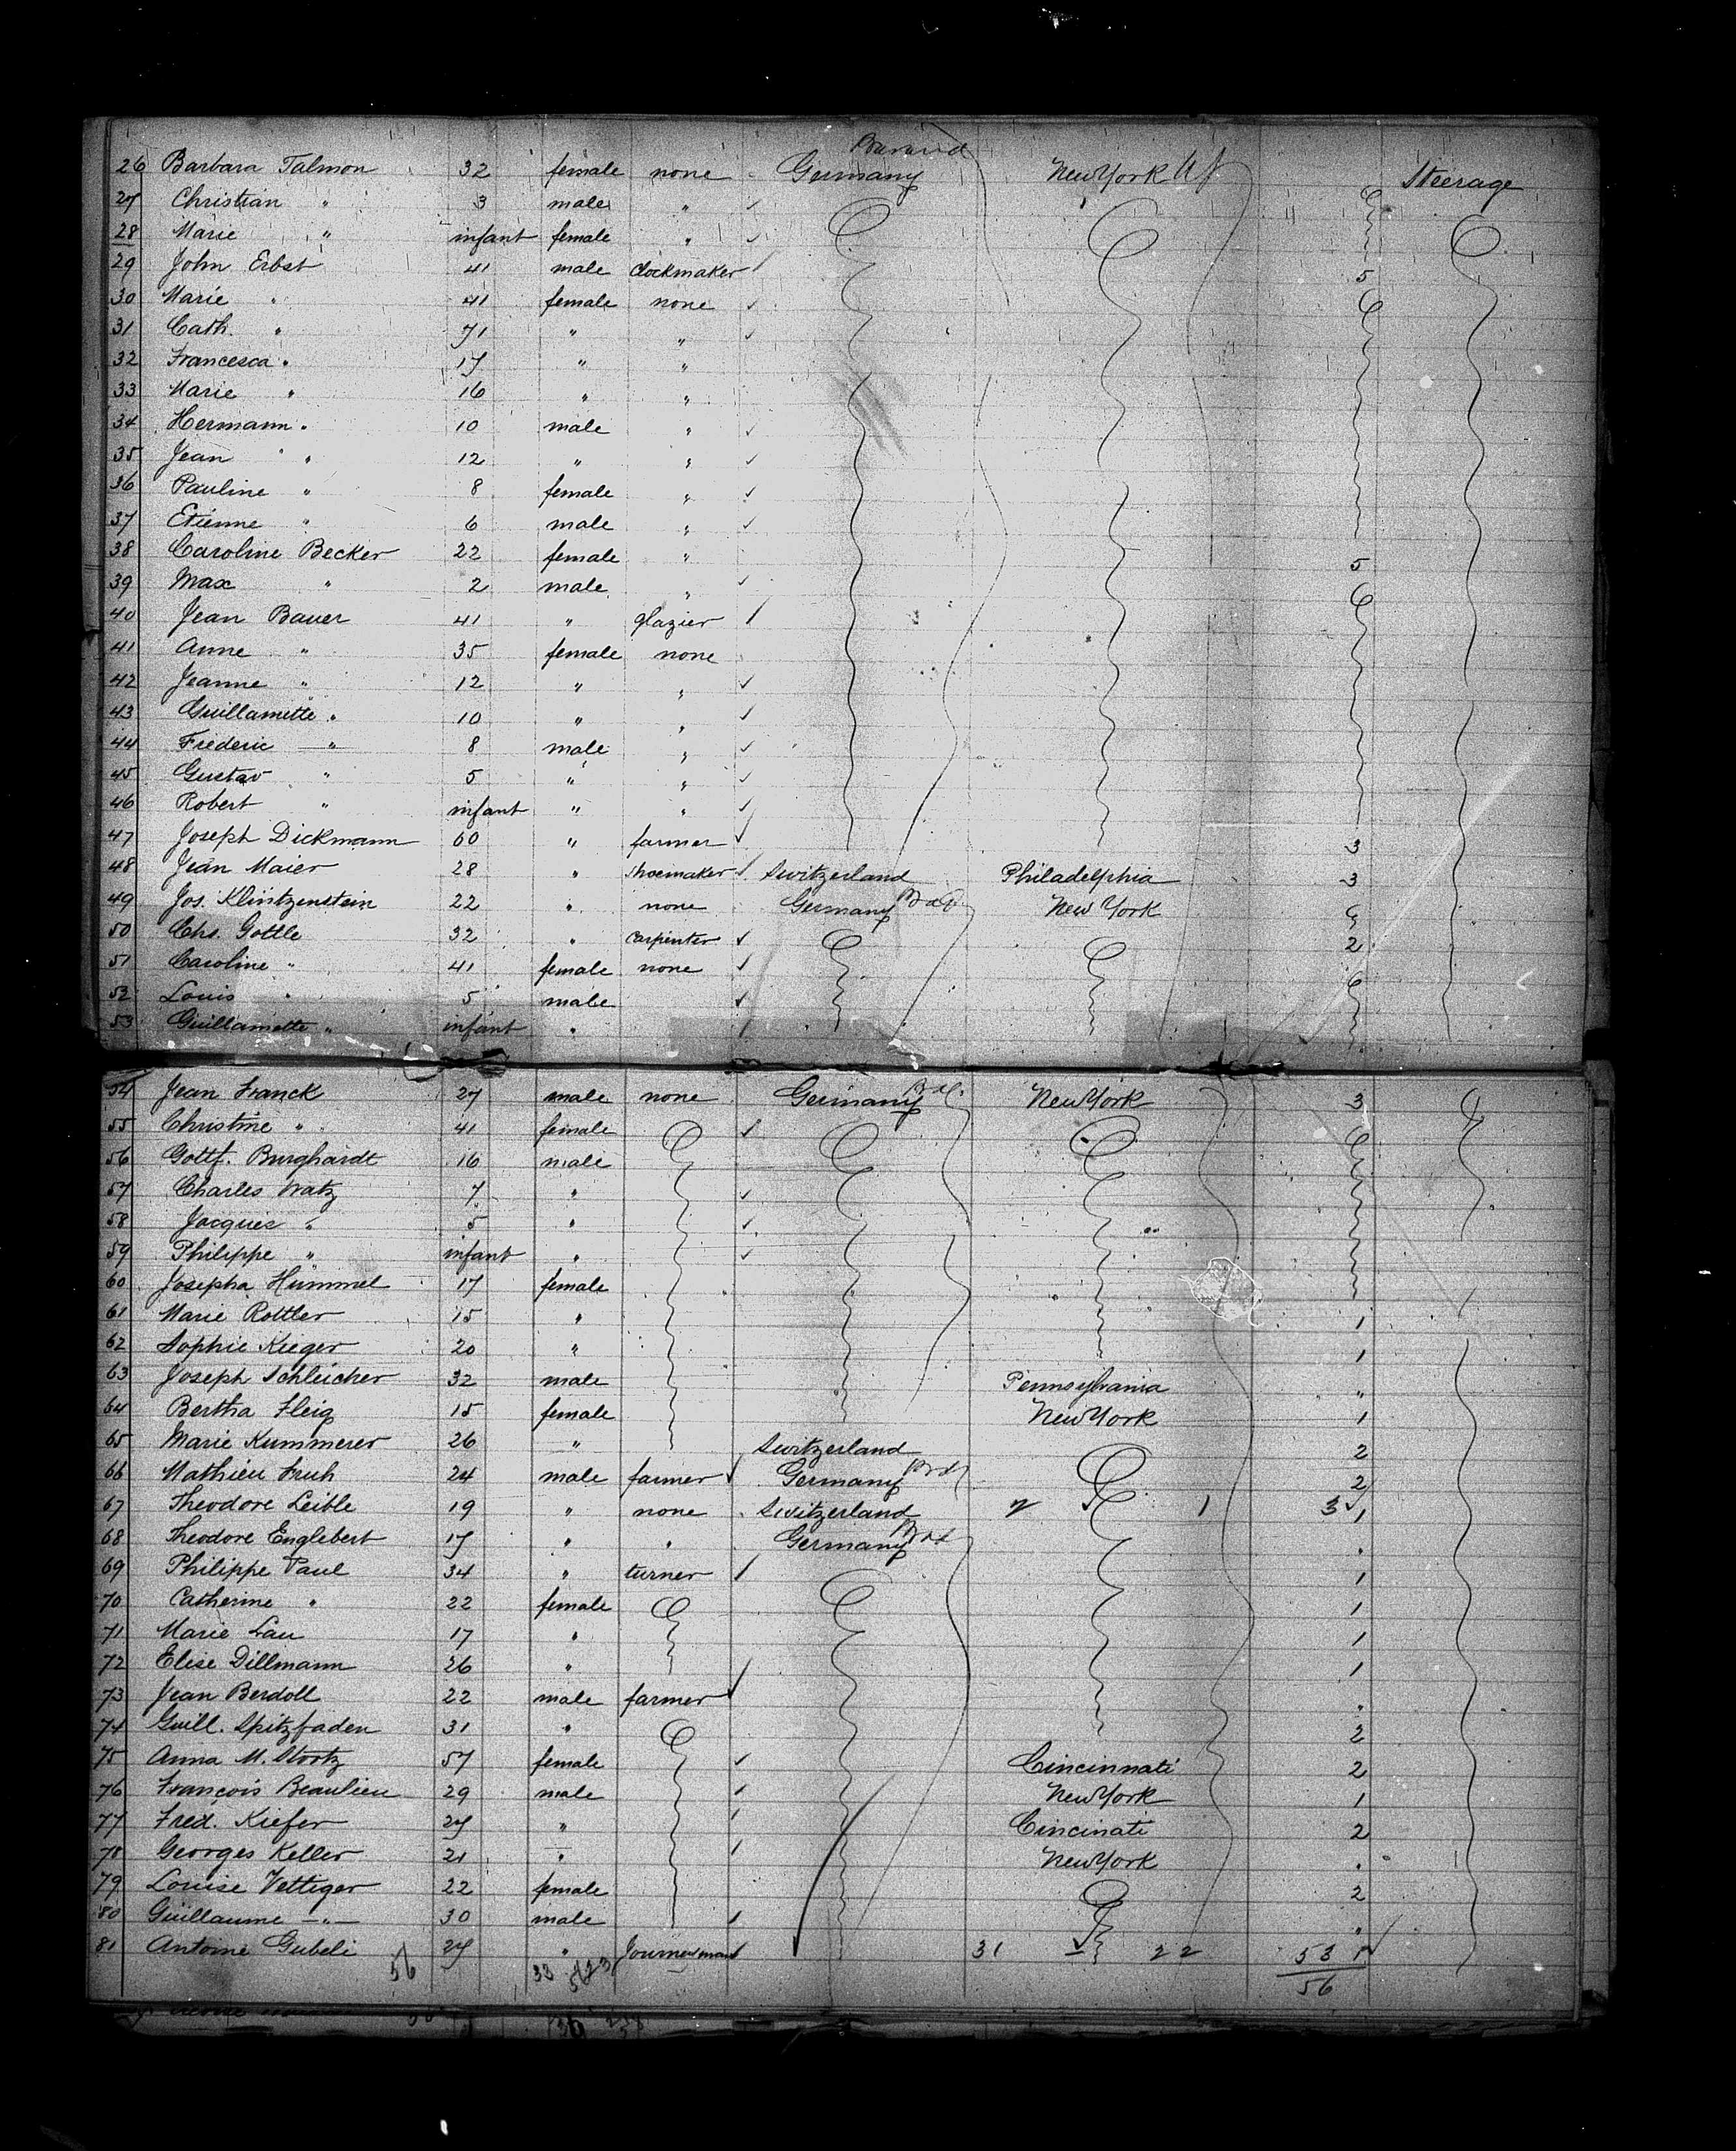 26 Barbara Talmon 32 female none Germany New York Steerage
27 Christian " 3 male "
28 Marie " infant female "
29 John Erbst 41 male clockmaker 5
30 Marie " 41 female none
31 Cath. " 71 " "
32 Francesca " 17 " "
33 Marie " 16 " "
34 Hermann " 10 male "
35 Jean " 12 " "
36 Pauline " 8 female "
37 Etienne " 6 male "
38 Caroline Becker 22 female " 5
39 Max " 2 male "
40 Jean Bauer 41 " glazier
41 Anne " 35 female none
42 Jeanne " 12 " "
43 Guillamette " 10 " "
44 Frederic " 8 male "
45 Gustav " 5 " "
46 Robert " infant " "
47 Joseph Dickmann 60 " farmer 3
48 Jean Maier 28 " shoemaker Switzerland Philadelphia 3
49 Jos. Klintzenstein 22 " none Germany New York
50 Chs. Gottle 32 " carpenter 2
51 Caroline " 41 female none
52 Louis " 5 male
53 Guillamette " infant "
54 Jean Franck 27 male none Germany New York 3
55 Christine " 41 female
56 Gottf. Burghardt 16 male
57 Charles Watz 7 "
58 Jacques " 5 "
59 Philippe " infant "
60 Josepha Hummel 17 female
61 Marie Rottler 15 " 1
62 Sophie Kieger 20 " 1
63 Joseph Schleicher 32 male Pennsylvania "
64 Bertha Fleig 15 female New York 1
65 Marie Kummerer 26 " Switzerland 2
66 Mathieu Fruh 24 male farmer Germany 2
67 Theodore Leible 19 " none Switzerland 2 1 3 1
68 Theodore Englebert 17 " " Germany "
69 Philippe Paul 34 " turner 1
70 Catherine " 22 female 1
71 Marie Lau 17 " 1
72 Elise Dillmann 26 " 1
73 Jean Berdoll 22 male farmer "
74 Guill. Spitzfaden 31 " 2
75 Anna M. Stortz 57 female Cincinnati 2
76 François Beaulieu 29 male New York 1
77 Fred. Kiefer 27 " Cincinati 2
78 Georges Keller 21 " New York "
79 Louise Vettiger 22 female 2
80 Guillaume " 30 male "
81 Antoine Gubeli 27 " Journeyman 31 22 53 1
56 33 56